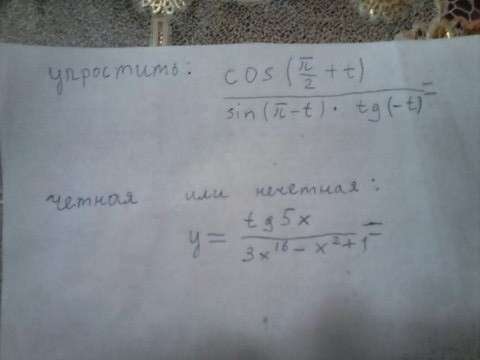 упростить: cos(π/2 + t) / sin(π-t) · tg(-t) =
четная или нечетная:
y = tg5x / 3x^16 - x^2 + 1 =